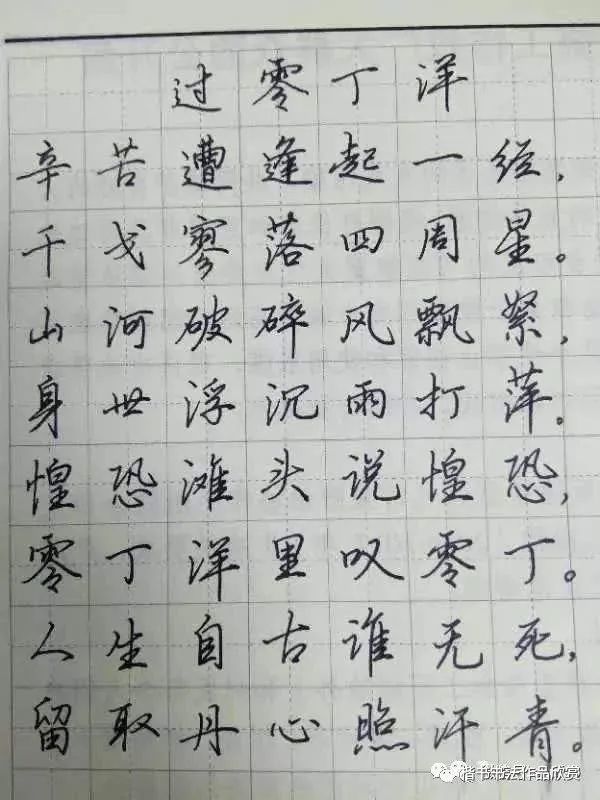 过零丁洋
辛苦遭逢起一经,
干戈寥落四周星。
山河破碎风飘絮,
身世浮沉雨打萍。
惶恐滩头说惶恐,
零丁洋里叹零丁。
人生自古谁无死,
留取丹心照汗青。
楷书书法作品欣赏